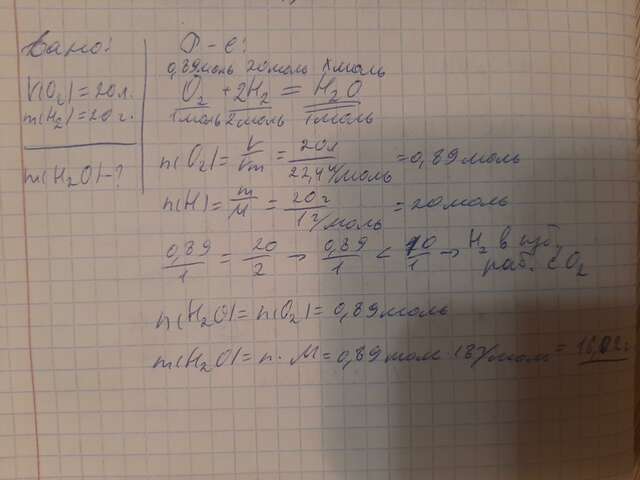 Дано:
V(O₂) = 20л.
m(H₂) = 20г.
m(H₂O) - ?
Р-е:
0,89моль 20моль Xмоль
O₂ + 2H₂ = H₂O
1моль 2моль 1моль
n(O₂) = V/Vm = 20л/22,4 л/моль = 0,89моль
n(H) = m/M = 20г/1г/моль = 20моль
0,89/1 = 20/2 → 0,89/1 < 10/1 → H₂ в изб,
раб. с O₂
n(H₂O) = n(O₂) = 0,89моль
m(H₂O) = n · M = 0,89моль · 18г/моль = 16,02г.